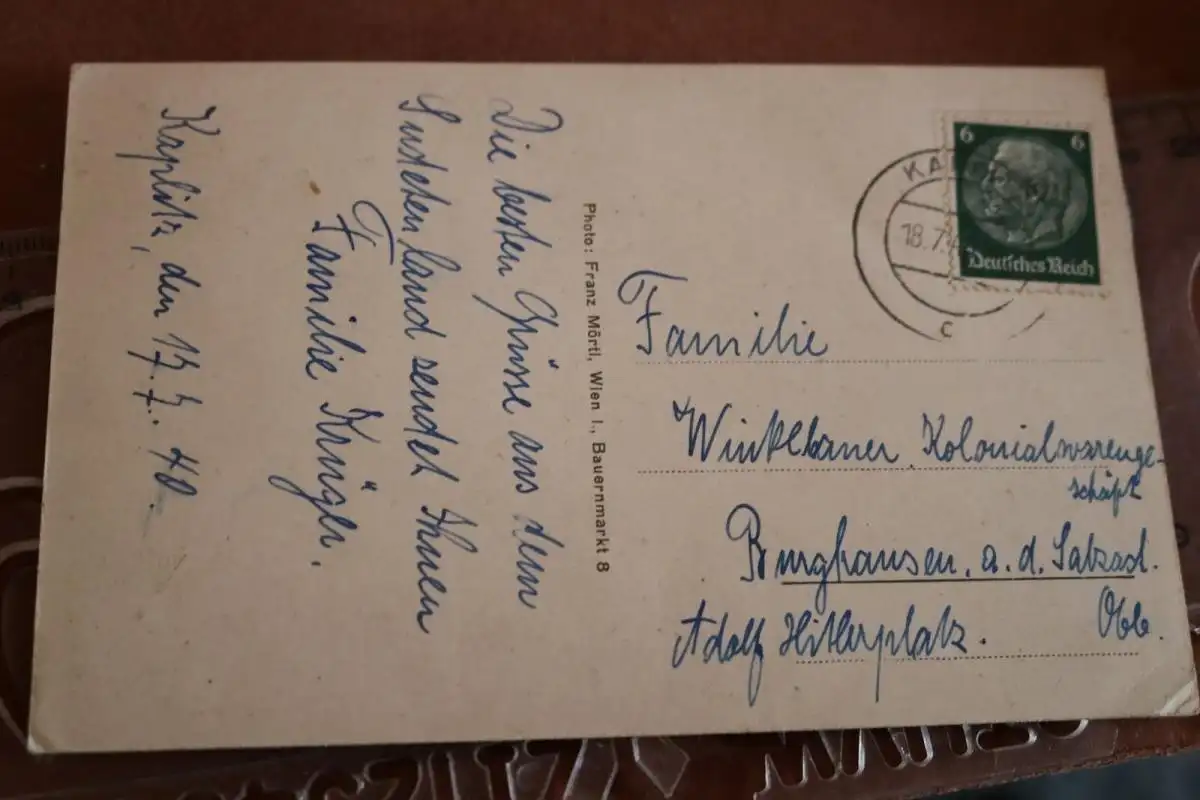 Kaplitz, den 17.7.40.
Die besten Grüsse aus dem
Sudetenland sendet Ihnen
Familie Krüger.
Photo: Franz Mörtl, Wien I., Bauernmarkt 8
6 6
Deutsches Reich
KA
18.7.4
c
Familie
Winklbauer Kolonialwarenge-
schäft
Burghausen. a. d. Salzach.
Obb.
Adolf Hitlerplatz.